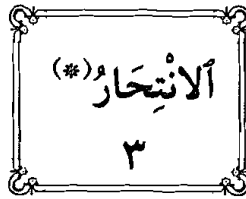 ٱلانْتِحَارُ(*)
٣